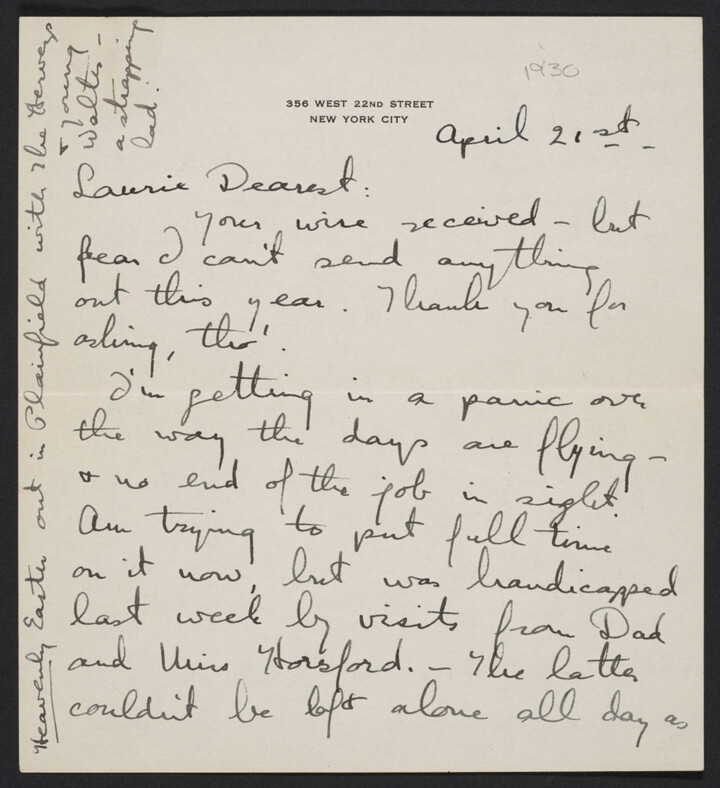 1930
356 WEST 22ND STREET
NEW YORK CITY
April 21st -
Laurie Dearest:
Your wire received - but
fear I can't send anything
out this year. Thank you for
asking, tho'.
I'm getting in a panic over
the way the days are flying -
& no end of the job in sight.
Am trying to put full time
on it now, but was handicapped
last week by visits from Dad
and Miss Horsford. - The latter
couldn't be left alone all day as
Heavenly Easter out in Plainfield with the Herveys
& young
Walter -
a strapping
lad!